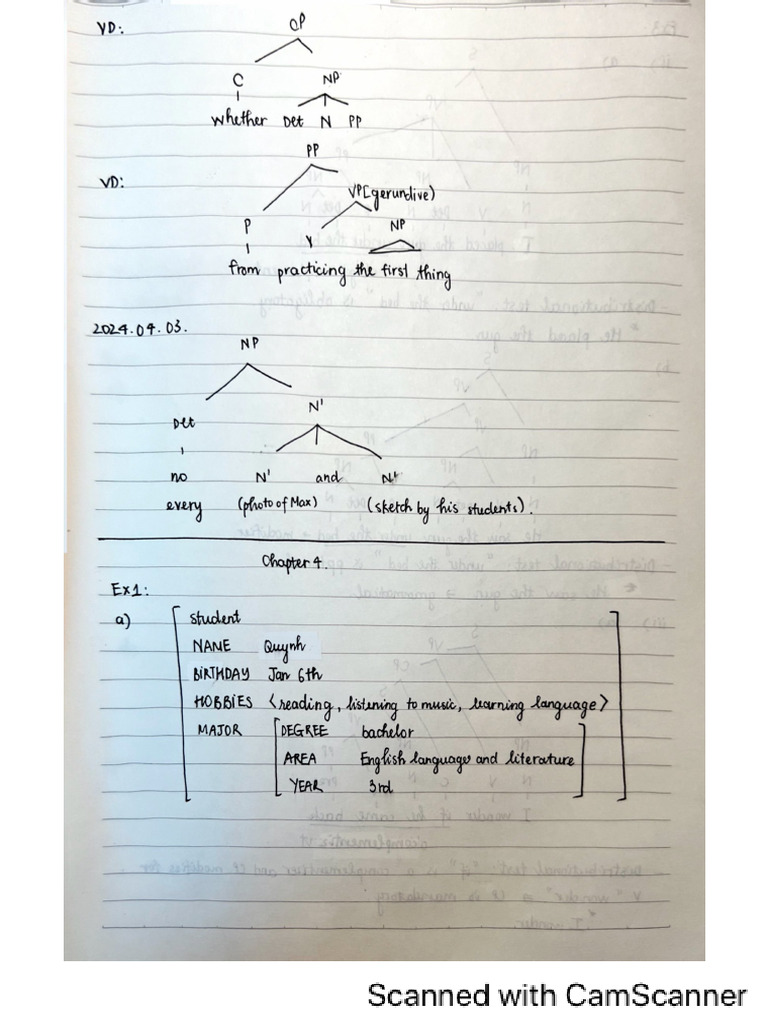 VD:
CP
C NP
whether Det N PP
PP
VD:
VP[gerundive)
P V NP
from practicing the first thing
2024.04.03.
NP
N'
Det
no N' and N'
every (photo of Max) (sketch by his students).
Chapter 4.
Ex1:
a) student
NAME Quynh
BIRTHDAY Jan 6th
HOBBIES <reading, listening to music, learning language>
MAJOR DEGREE bachelor
AREA English language and literature
YEAR 3rd
Scanned with CamScanner